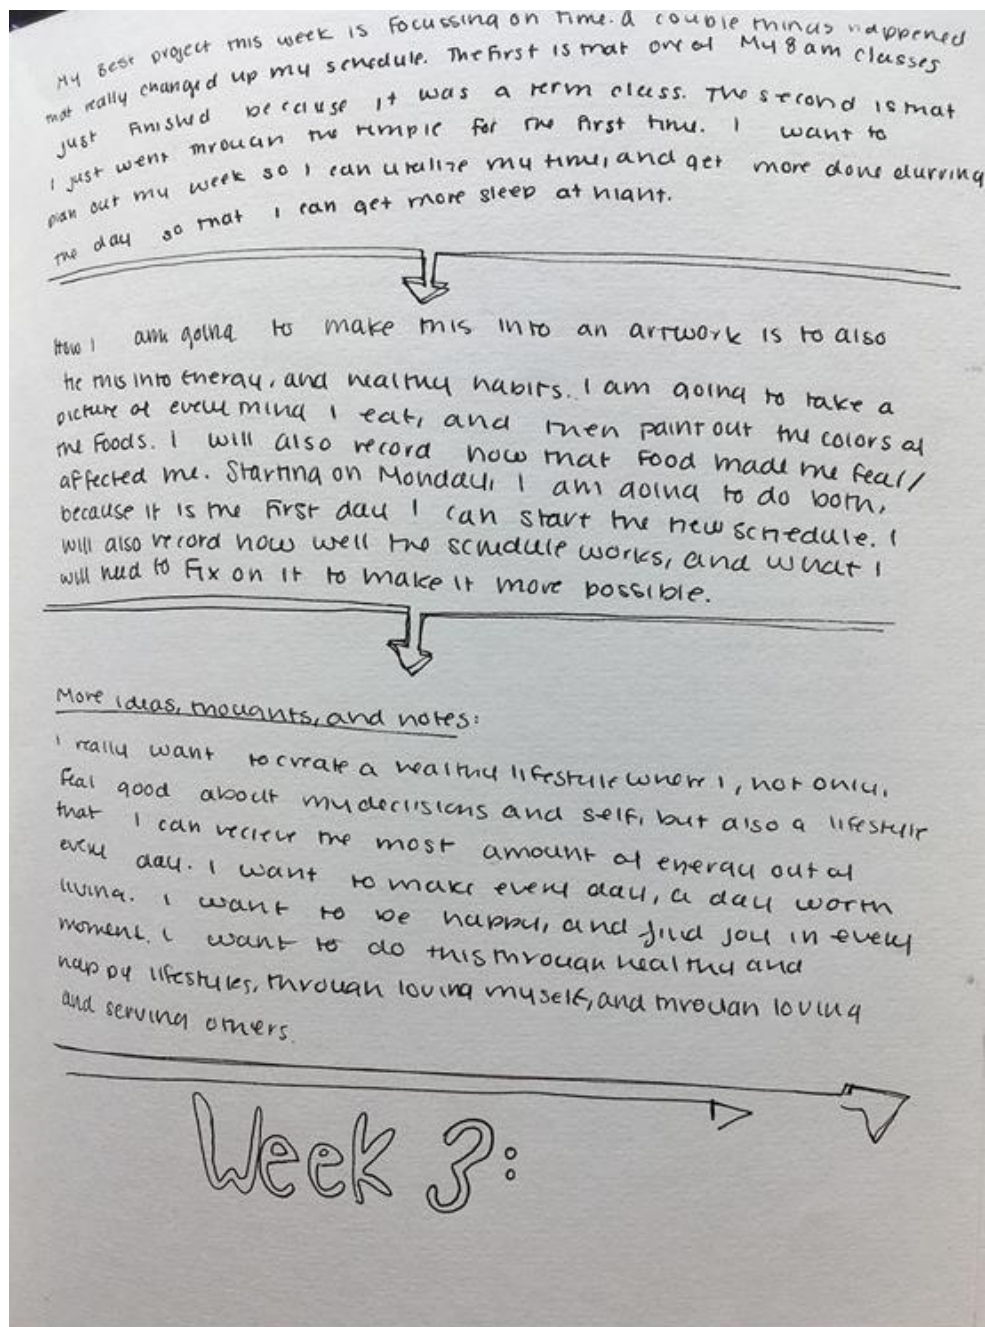 My Best project this week is Focussing on time. a couple things happened
that really changed up my schedule. The First is that one of My 8 am classes
just Finished because it was a term class. The second is that
I just went through the temple for the First time. I want to
plan out my week so I can utalize my time, and get more done durring
the day so that I can get more sleep at night.
How I am going to make this into an artwork is to also
tie this into Energy, and healthy habits. I am going to take a
picture of every thing I eat, and then paint out the colors of
the Foods. I will also record how that Food made me feal/
affected me. Starting on Monday, I am going to do both,
because it is the First day I can start the new schedule. I
will also record how well the schedule works, and what I
will need to Fix on it to make it more possible.
More ideas, thoughts, and notes:
I really want to create a healthy lifestyle where I, not only,
Feal good about my decisions and self, but also a lifestyle
that I can recieve the most amount of energy out of
every day. I want to make every day, a day worth
living. I want to be happy, and find joy in every
moment. I want to do this through healthy and
happy lifestyles, through loving myself, and through loving
and serving others.
Week 3: